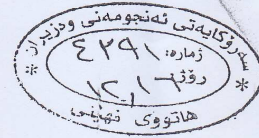 سەرۆکایەتی ئەنجومەنی وەزیران
ژمارە: ٤٢٩١
رۆژ: ١٢،١٦
هاتووی نهێنی